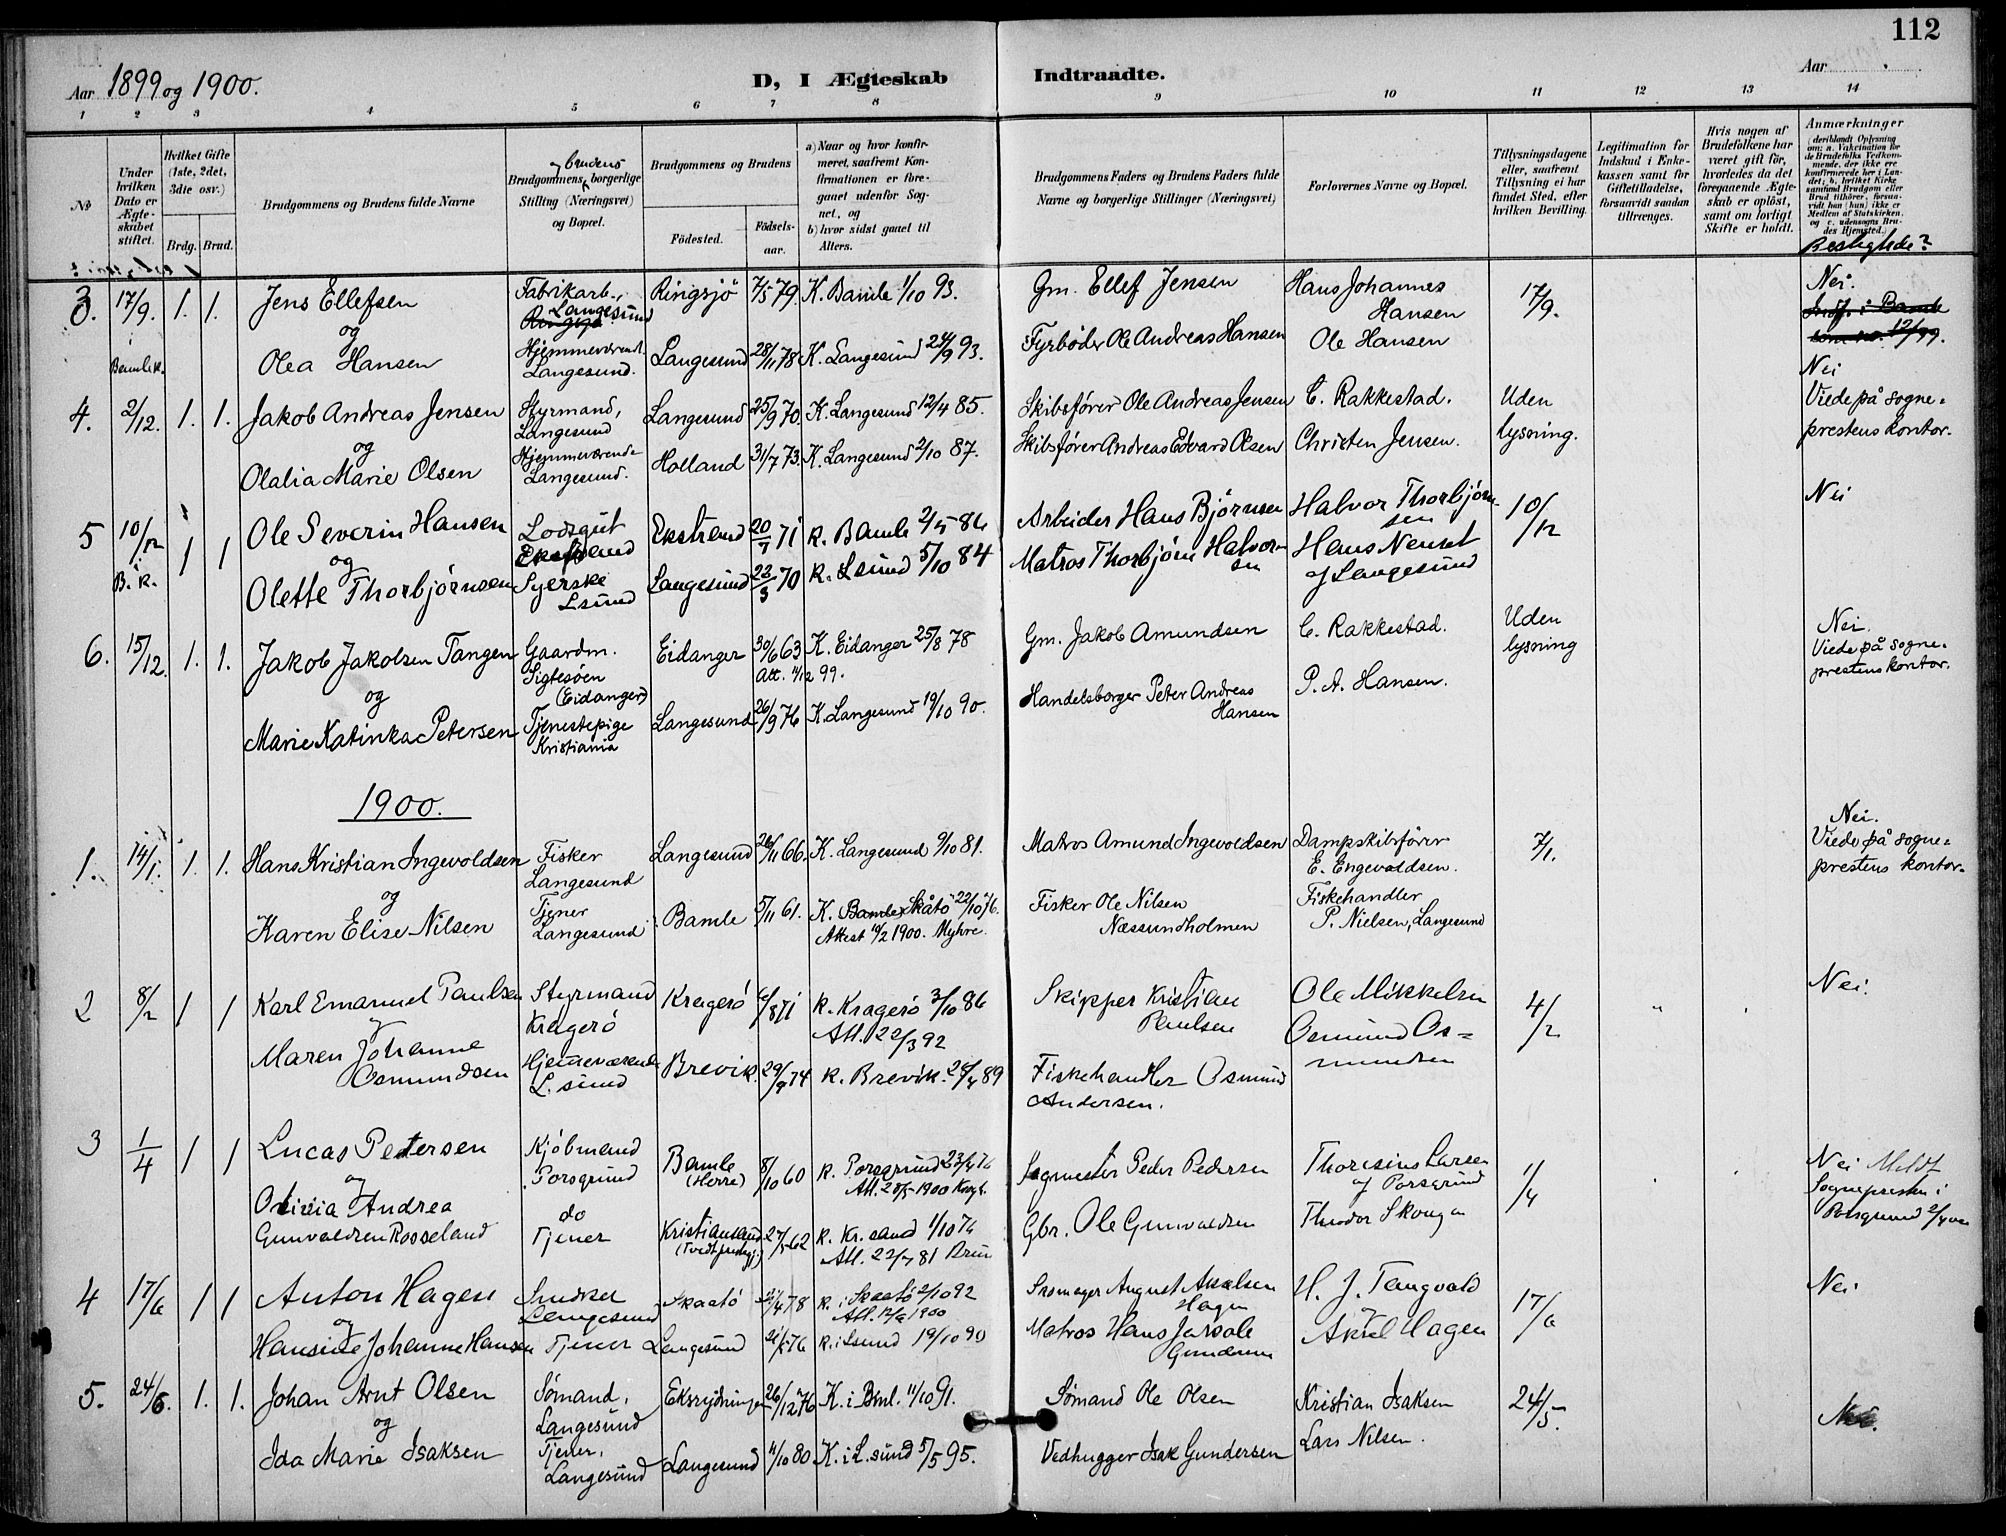 112
Aar 1899 og 1900.
D, I Ægteskab Indtraadte.
Aar
1 2 3 4 5 6 7 8 9 10 11 12 13 14
No
Under hvilken Dato er Ægteskabet stiftet.
Hvilket Gifte (1ste, 2det, 3die osv.)
Brdg. Brud.
Brudgommens og Brudens fulde Navne
Brudgommens, brudens borgerlige Stilling (Næringsvei) og Bopæl.
Brudgommens og Brudens
Födested.
Födsels-aar.
a) Naar og hvor konfirmeret, saafremt Konfirmationen er foregaaet udenfor Sognet, og
b) hvor sidst gaaet til Alters.
Brudgommens Faders og Brudens Faders fulde Navne og borgerlige Stillinger (Næringsvei)
Forlovernes Navne og Bopæl.
Tillysningsdagene eller, saafremt Tillysning ei har fundet Sted, efter hvilken Bevilling.
Legitimation for Indskud i Enkekassen samt for Giftetilladelse, forsaavidt saadan tiltrænges.
Hvis nogen af Brudefolkene har været gift för, hvorledes da det foregaaende Ægteskab er oplöst, samt om lovligt Skifte er holdt.
Anmærkninger (deriblandt Oplysning om: a. Vakcination for de Brudefolks Vedkommende, der ikke ere konfirmerede her i Landet; b. hvilket Kirkesamfund Brudgom eller Brud tilhörer, forsaavidt han (hun) ikke er Medlem af Statskirken, og c. udensogns Brudes Hjemsted.)
Beslegtede?
3. 17/9. i Bamle k. 1. 1. Jens Ellefsen Fabrikarb., Langesund Ringsjö 7/5 79. K. Bamle 1/10 93. Gm. Ellef Jensen Hans Johannes Hansen 17/9. Nei.
og
Olea Hansen Hjemmeværend. Langesund. Langesund 28/11 78 K. Langesund 24/9 93. Fyrbøder Ole Andreas Hansen Ole Hansen
4. 2/12. 1. 1. Jakob Andreas Jensen Styrmand, Langesund Langesund 25/9 70. K. Langesund 12/4 85. Skibsfører Ole Andreas Jensen C. Rakkestad. Uden lysning. Nei Viede på sogneprestens kontor.
og
Olalia Marie Olsen Hjemmeværende Langesund. Holland 31/7 73. K. Langesund 2/10 87. Skibsfører Andreas Edvard Olsen Christen Jensen.
5 10/12 i B. k. 1 1 Ole Severin Hansen Lodsgut Ekstrand Ekstrand 20/7 71 k. Bamle 2/5 86 Arbeider Hans Björnsen Halvor Thorbjörnsen 10/12 Nei
og
Olette Thorbjörnsen Syerske Lsund Langesund 22/3 70 k. Lsund 5/10 84 Matros Thorbjörn Halvorsen Hans Nenset af Langesund
6. 15/12. 1. 1. Jakob Jakobsen Tangen Gaardm. Sigtesöen (Eidanger) Eidanger 30/6 63 K. Eidanger 25/8 78 Att. 11/12 99. Gm. Jakob Amundsen C. Rakkestad. Uden lysning Nei. Viede på sogneprestens kontor.
og
Marie Katinka Petersen Tjenestepige Kristiania Langesund 26/9 76 K. Langesund 19/10 90. Handelsborger Peter Andreas Hansen P. A. Hansen.
1900.
1. 14/1. 1. 1. Hans Kristian Ingevoldsen Fisker Langesund Langesund 26/11 66. K. Langesund 9/10 81. Matros Amund Ingevoldsen Dampskibsfører E. Engevaldsen. 7/1. Nei. Viede på sogneprestens kontor.
og
Karen Elise Nilsen Tjener Langesund Bamle 5/11 61. K. Skåtö 22/10 76. Attest 10/2 1900. Myhre. Fisker Ole Nilsen Næssundholmen Fiskehandler P. Nielsen, Langesund
2 8/2 1 1 Karl Emanuel Paulsen Styrmand Kragerö Kragerö k. Kragerö 3/10 86 Att. 22/3 92 Skipper Kristian Paulsen Ole Mikkelsen 4/2 Nei.
og
Maren Johanne Osmundsen Hjemmeværende L. sund Brevik. 29/9 74 k. Brevik. 28/4 89 Fiskehandler Osmund Andersen. Osmund Osmundsen
3 1/4 1 1 Lucas Petersen Kjöbmand Porsgrund Bamle (Herre) 8/10 60 k. Porsgrund 23/4 76 Sagmester Peder Pedersen Thoresius Larsen af Porsgrund 1/4 Nei Meldt Sognepresten i Porsgrund
og
Olivia Andrea Gunvaldsen Rosseland do Tjener Kristiansand 27/5 62 k. Kr.sand 1/10 76 Gbr. Ole Gunvaldsen Theodor Skougen
4 17/6 1 1 Anton Hagen Snedker Langesund Skaatö k. i Skaatö 2/10 92 August Hagen H. J. Tangvald 17/6 Nei
og
Hansine Johanne Hansen Tjener Langesund k. i Lsund 19/10 90 Matros Hans Gundersen Aksel Hagen
5. 24/6. 1. 1. Johan Arnt Olsen Sömand, Langesund Eksrydningen 26/12 76 K. i Bml. 11/10 91. Sömand Ole Olsen Kristian Isaksen 24/5. Nei.
og
Ida Marie Isaksen Tjener, Langesund Langesund 11/10 80 K. i L.sund 5/5 95. Vedhugger Isak Gundersen Lars Nilsen.